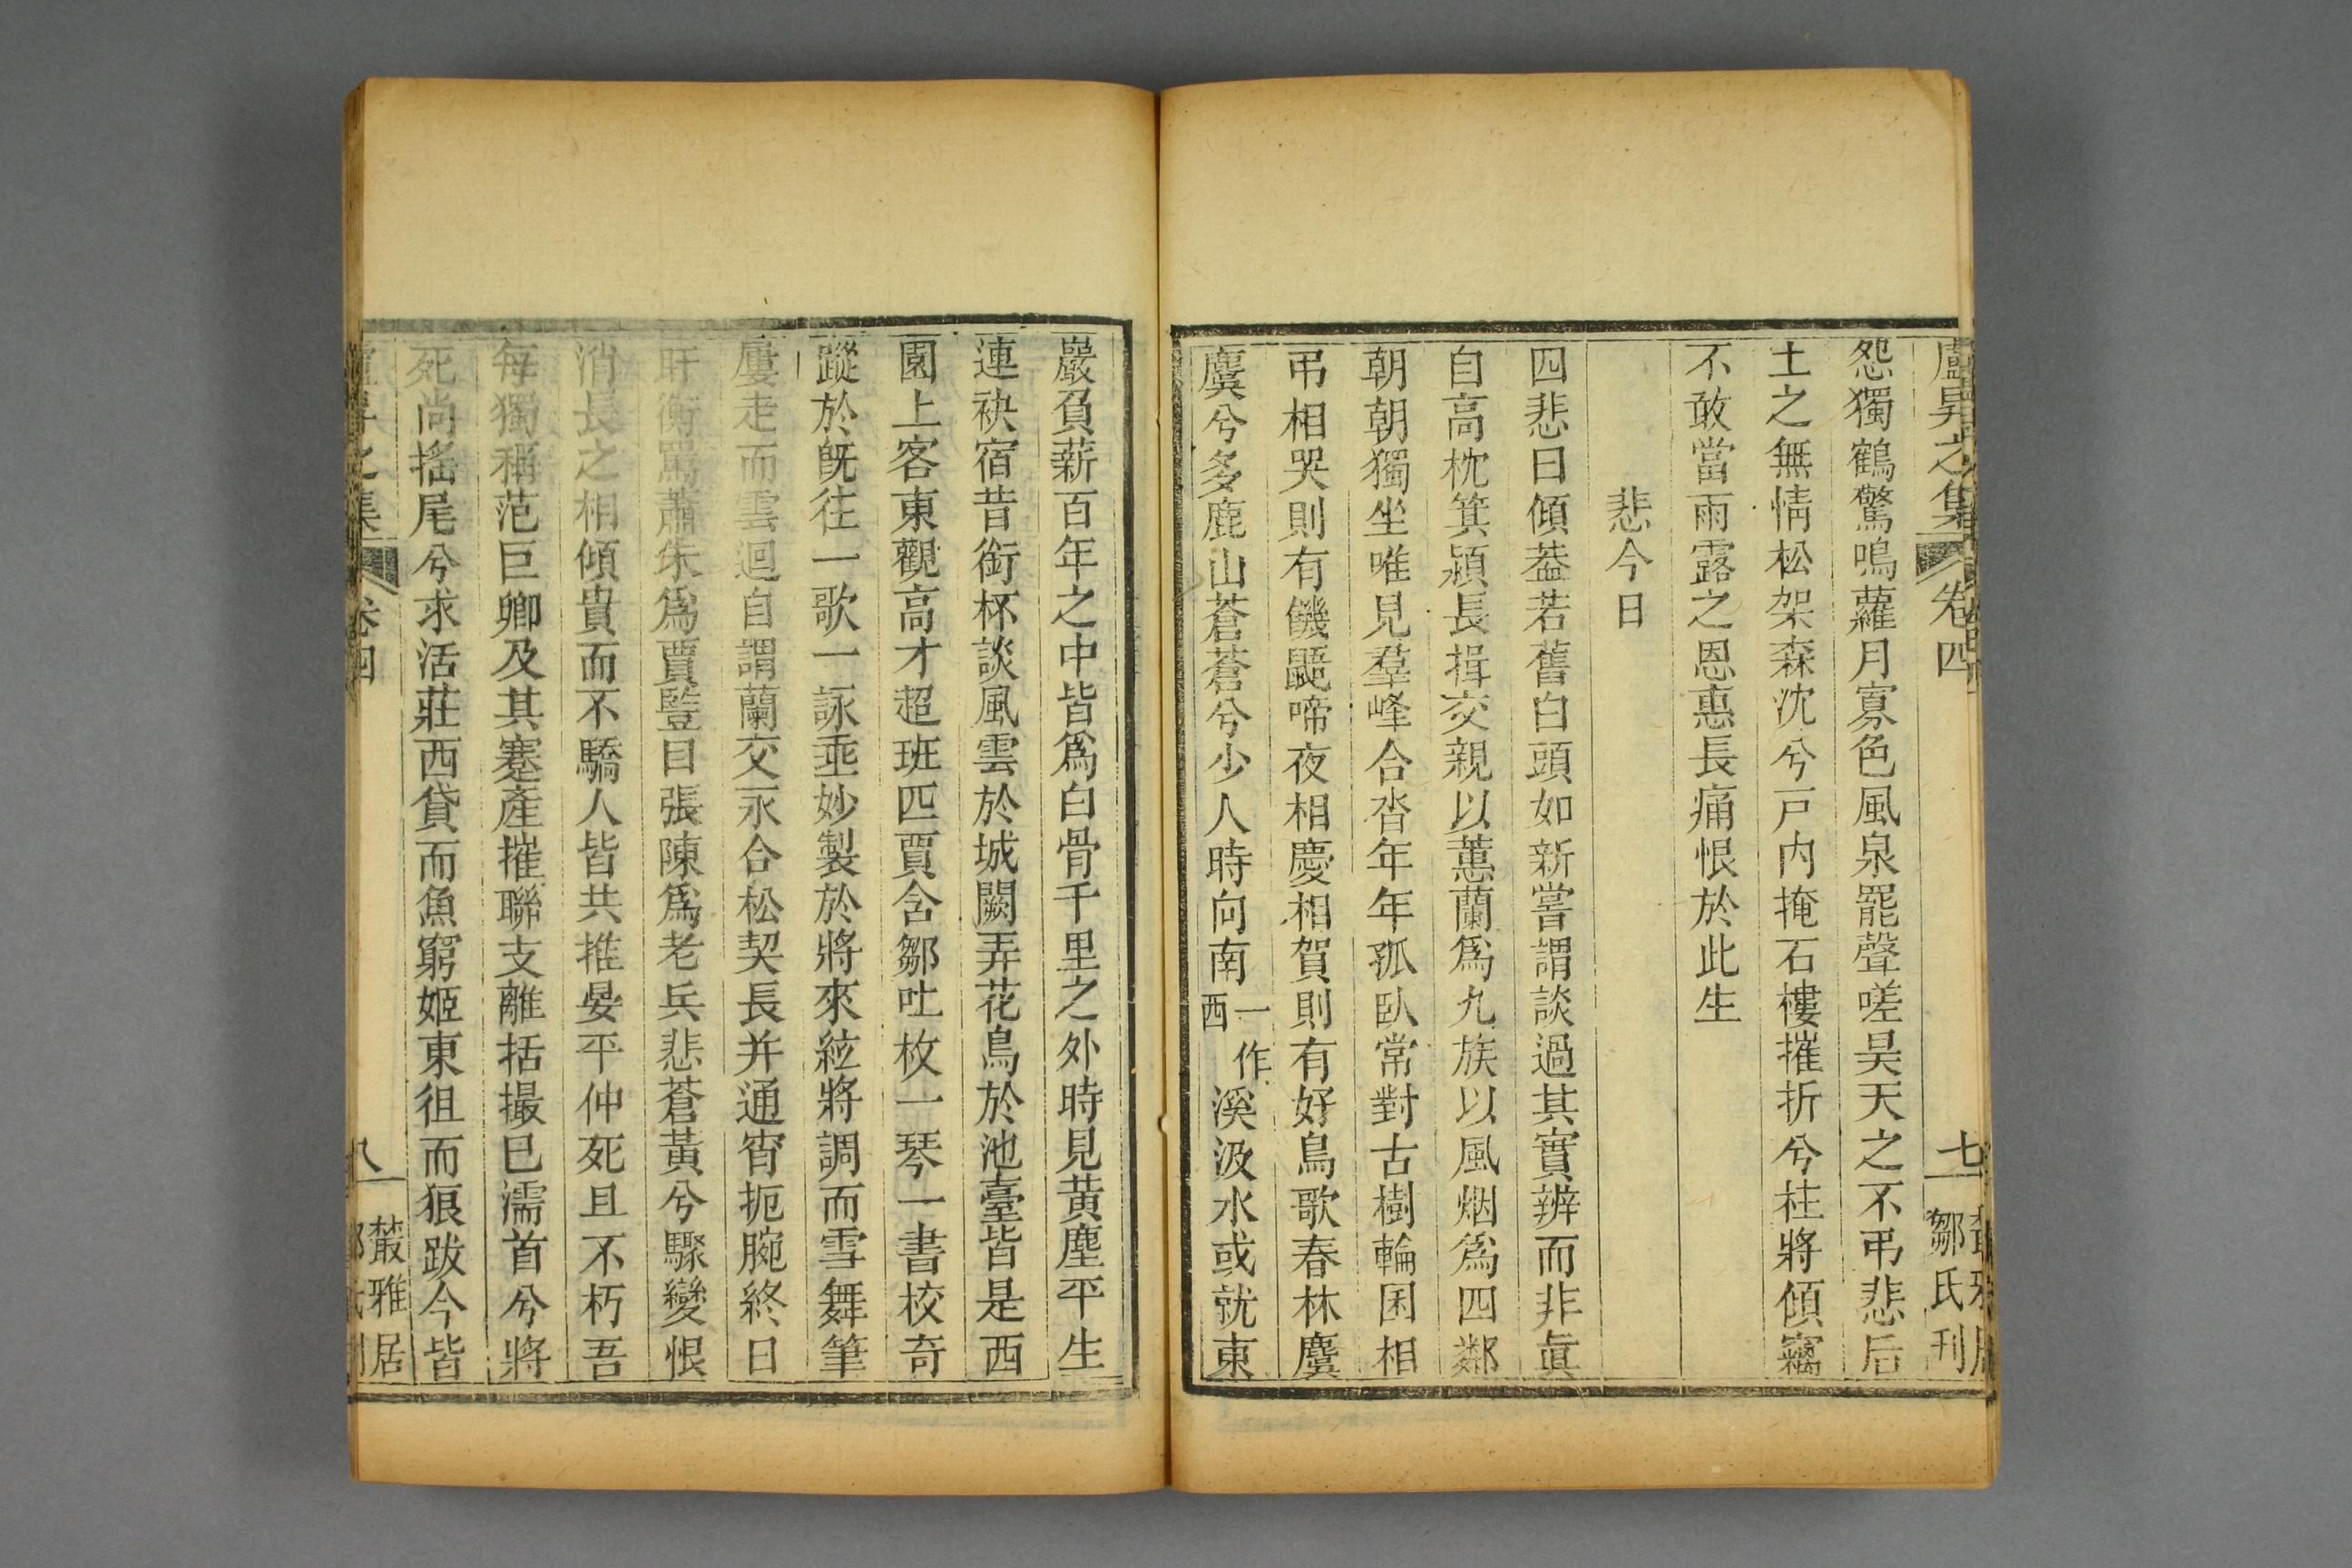 盧昇之集 卷四 七 叢雅居鄒氏刊
怨獨鶴驚鳴蘿月寡色風泉罷聲嗟昊天之不弔悲后
土之無情松架森沈兮戸内掩石樓摧折兮柱將傾竊
不敢當雨露之恩惠長痛恨於此生
悲今日
四悲曰傾葢若舊白頭如新嘗謂談過其實辨而非眞
自高枕箕潁長揖交親以蕙蘭爲九族以風烟爲四鄰
朝朝獨坐唯見羣峰合沓年年孤臥常對古樹輪囷相
弔相哭則有饑鼯啼夜相慶相賀則有好鳥歌春林麌
麌兮多鹿山蒼蒼兮少人時向南一作西溪汲水或就東
巖負薪百年之中皆爲白骨千里之外時見黄塵平生
連袂宿昔銜杯談風雲於城闕弄花鳥於池臺皆是西
園上客東觀高才超班匹賈含鄒吐枚一琴一書校奇
蹤於旣往一歌一詠垂妙製於將來絃將調而雪舞筆
屢走而雲迴自謂蘭交永合松契長并通宵扼腕終日
盱衡罵蕭朱爲賈豎目張陳爲老兵悲蒼黃兮驟變恨
消長之相傾貴而不驕人皆共推晏平仲死且不朽吾
每獨稱范巨卿及其蹇產摧聯支離括撮已濡首兮將
死尚搖尾兮求活莊西貸而魚窮姬東徂而狼跋今皆
盧昇之集 卷四 八 叢雅居鄒氏刊